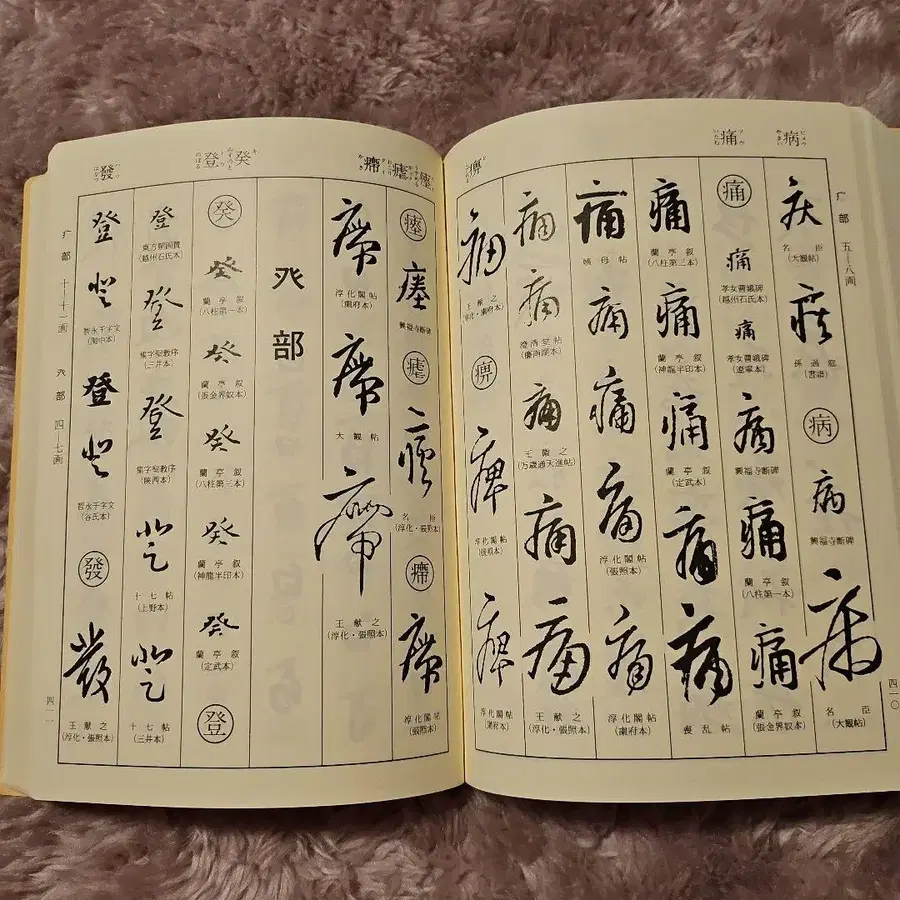 病
痛
痺
疒部 五—八画
四一〇
疾
名臣
(大観帖)
疾
孫過庭
(書譜)
病
病
興福寺断碑
病
名臣
(大観帖)
痛
痛
孝女曹娥碑
(越州石氏本)
痛
孝女曹娥碑
(遼寧本)
痛
興福寺断碑
痛
蘭亭叙
(八柱第一本)
痛
蘭亭叙
(張金界奴本)
痛
蘭亭叙
(八柱第三本)
痛
蘭亭叙
(神龍半印本)
痛
蘭亭叙
(定武本)
痛
痛
喪乱帖
痛
姨母帖
痛
痛
痛
淳化閣帖
(張照本)
痛
淳化閣帖
(粛府本)
痛
痛
澄清堂帖
痛
(万歳通天進帖)
痛
痛
王献之
(淳化・張照本)
痛
王献之
(淳化・粛府本)
痺
痺
淳化閣帖
(張照本)
痺
淳化閣帖
(粛府本)
瘞
瘧
癸
登
發
瘞
瘞
興福寺断碑
瘧
瘧
名臣
(淳化・張照本)
淳化閣帖
(張照本)
淳化閣帖
(粛府本)
大観帖
王献之
(淳化・張照本)
癶部
癸
癸
蘭亭叙
(八柱第一本)
癸
蘭亭叙
(張金界奴本)
癸
蘭亭叙
(八柱第三本)
癸
蘭亭叙
(神龍半印本)
癸
蘭亭叙
(定武本)
登
登
東方朔画賛
(越州石氏本)
登
集字聖教序
(三井本)
登
集字聖教序
(陝西本)
登
十七帖
(上野本)
登
十七帖
(三井本)
登
登
智永千字文
(関中本)
登
登
智永千字文
(谷氏本)
發
發
王献之
(淳化・張照本)
疒部 十—十一画
癶部 四—七画
四一一